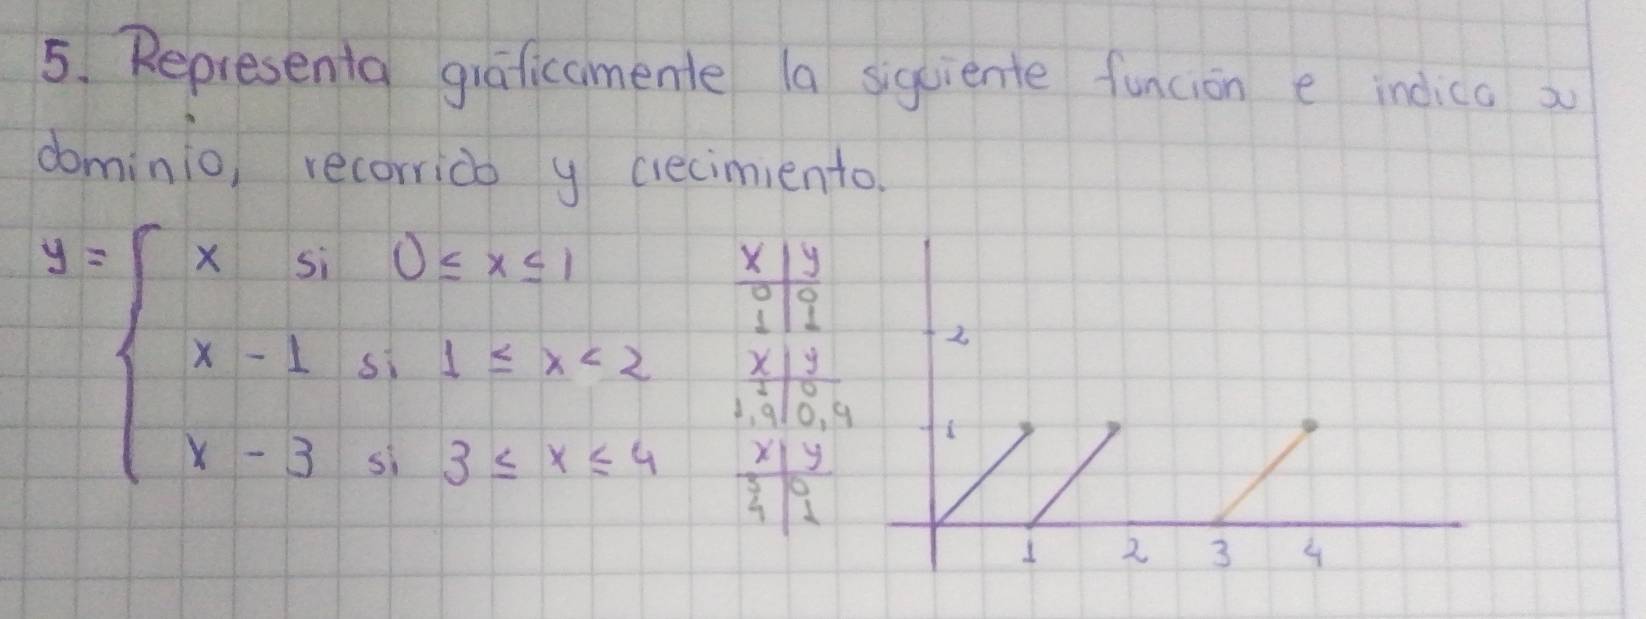 5. Representa gráficamente la siguiente función e indica su
dominio, recorrido y crecimiento.
y = { x si 0 ≤ x ≤ 1
x - 1 si 1 ≤ x < 2
x - 3 si 3 ≤ x ≤ 4
x | y
0 | 0
1 | 1
x | y
1 | 0
1,9 | 0,9
x | y
3 | 0
4 | 1
2
1
1 2 3 4